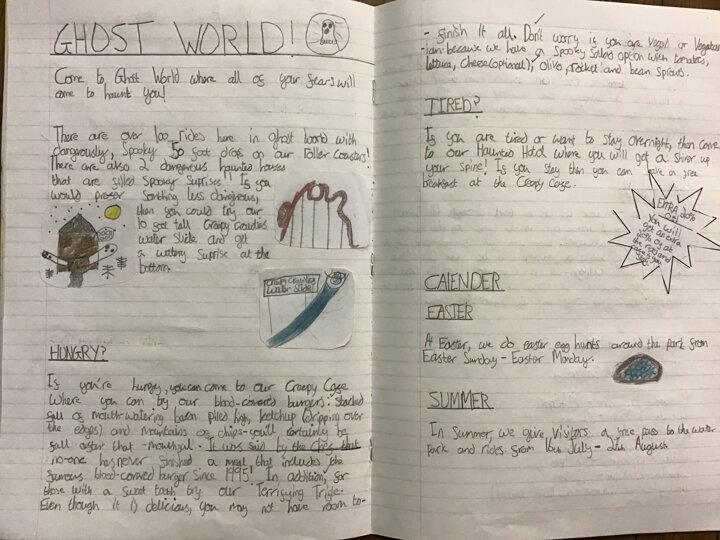 GHOST WORLD!
Come to Ghost World where all of your fears will
come to haunt you!
There are over 100 rides here in ghost world with
dangerously, spooky 50 foot drops on our roller coasters!
There are also 2 dangerous haunted houses
that are filled spooky suprises! If you
would prefer somthing less dangerous,
then you could try our
10 foot tall Creepy Crawlies
Water Slide and get
a watery suprise at the
bottom.
Creepy Crawlies
Water Slide!
HUNGRY?
If you're hungry, you can come to our Creepy Cafe
where you can try our blood-covered burgers: stacked
full of mouth-watering bacon piled high, ketchup (dripping over
the edges) and mountains of chips-you'll certainly be
full after that mouthful. It was said by the chefs that
no-one has never finished a meal that includes the
famous blood-covered burger since 1995! In addition, for
those with a sweet tooth try our Terrifying Trifle.
Even though it is delicious, you may not have room to-
- finish it all. Don't worry if you are vegan or
because we have a spooky salad option with tomatoes,
lettuce, cheese (optional), olives, rocket and bean sprouts.
TIRED?
If you are tired or want to stay overnight, then come
to our Haunted Hotel where you will get a shiver up
your spine! If you stay then you can have a free
breakfast at the Creepy Cafe.
EXTRA 20%
OFF
You will
get an extra
20% off at
the
CALENDER
EASTER
At Easter, we do easter egg hunts around the park from
Easter Sunday - Easter Monday.
SUMMER
In Summer, we give visitors a free pass to the water
park and rides from 16th July - 24th August.